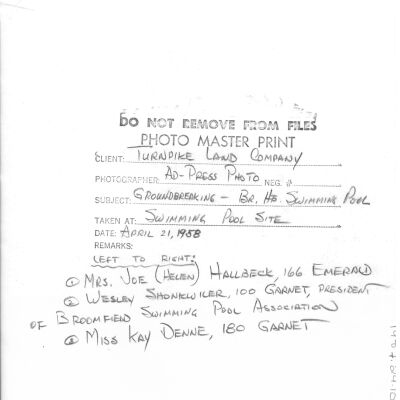 DO NOT REMOVE FROM FILES
PHOTO MASTER PRINT
CLIENT: TURNPIKE LAND COMPANY
PHOTOGRAPHER: AD-PRESS PHOTO NEG. #
SUBJECT: GROUNDBREAKING – BR. HTS. SWIMMING POOL
TAKEN AT: SWIMMING POOL SITE
DATE: APRIL 21, 1958
REMARKS:
LEFT TO RIGHT:
① MRS. JOE (HELEN) HALLBECK, 166 EMERALD
② WESLEY SHONKWILER, 100 GARNET, PRESIDENT
OF BROOMFIELD SWIMMING POOL ASSOCIATION
③ MISS KAY DENNE, 180 GARNET